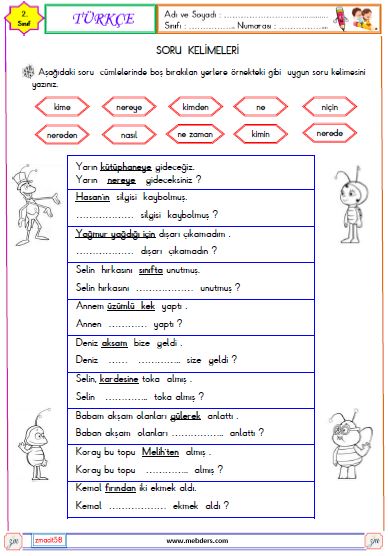 2.
Sınıf
TÜRKÇE
Adı ve Soyadı : ………………………………
Sınıfı : …………….. Numarası : ………………..
SORU KELİMELERİ
Aşağıdaki soru cümlelerinde boş bırakılan yerlere örnekteki gibi uygun soru kelimesini
yazınız.
kime nereye kimden ne niçin
nereden nasıl ne zaman kimin nerede
Yarın kütüphaneye gideceğiz.
Yarın nereye gideceksiniz ?
Hasan'ın silgisi kaybolmuş.
……………… silgisi kaybolmuş ?
Yağmur yağdığı için dışarı çıkamadım .
……………… dışarı çıkamadın ?
Selin hırkasını sınıfta unutmuş.
Selin hırkasını ……………… unutmuş ?
Annem üzümlü kek yaptı .
Annen ………… yaptı ?
Deniz akşam bize geldi .
Deniz …… ………….. size geldi ?
Selin, kardeşine toka almış .
Selin ………….. toka almış ?
Babam akşam olanları gülerek anlattı .
Baban akşam olanları …………….. anlattı ?
Koray bu topu Melih'ten almış .
Koray bu topu ………….. almış ?
Kemal fırından iki ekmek aldı.
Kemal ……………… ekmek aldı ?
zm
zmadit58
www.mebders.com
zm